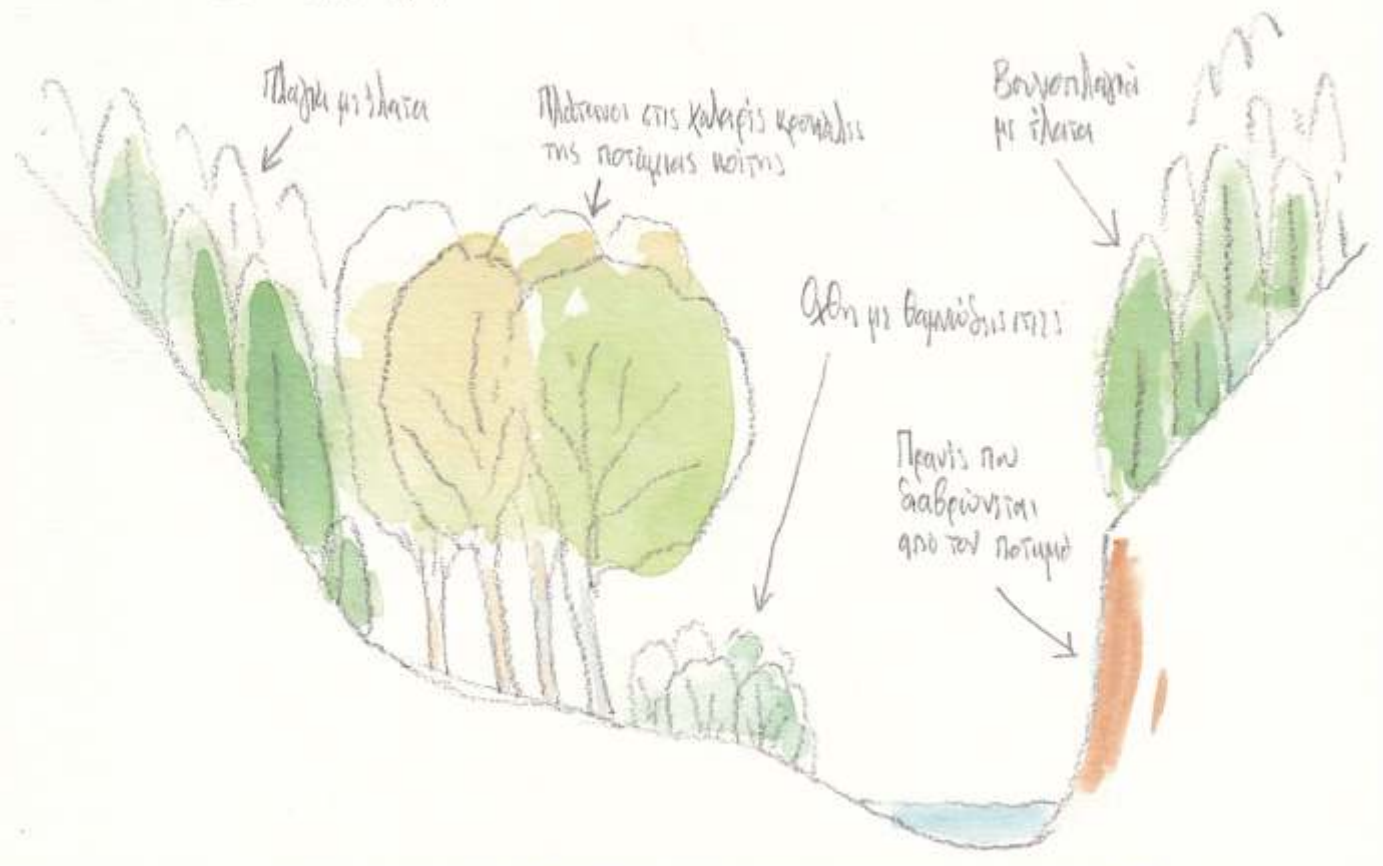 Πλαγιά με έλατα
Πλάτανοι στις χαλαρές κροκάλες
της ποτάμιας κοίτης
Βουνοπλαγιά
με έλατα
Όχθη με θαμνώδεις ιτιές
Πρανές που
διαβρώνεται
από τον ποταμό